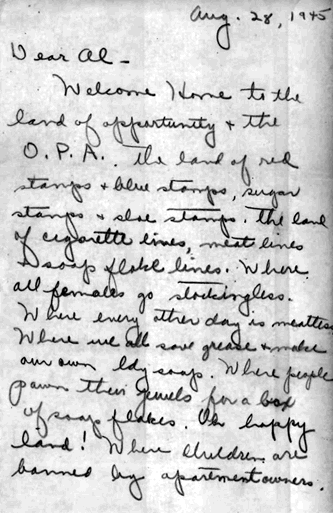 Aug. 28, 1945
Dear Al -
Welcome Home to the
land of opportunity & the
O.P.A. The land of red
stamps & blue stamps, sugar
stamps & shoe stamps. The land
of cigarette lines, meat lines
& soap flake lines. Where
all females go stockingless.
Where every other day is meatless.
Where we all save grease & make
our own ldy soap. Where people
pawn their jewels for a box
of soap flakes. Oh happy
land! Where children are
banned by apartment owners.